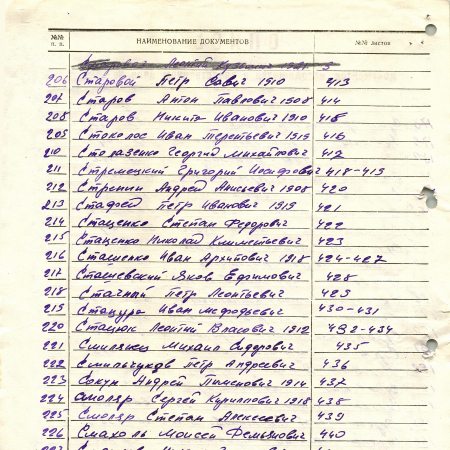 №№ п. п. НАИМЕНОВАНИЕ ДОКУМЕНТОВ №№ листов
206 Старовой Петр Савич 1910 413
207 Старов Антон Павлович 1908 414
208 Старов Никита Иванович 1910 415
209 Стоколос Иван Терентьевич 1919 416
210 Столазенко Георгий Михайлович 417
211 Стремецкий Григорий Иосифович 418-419
212 Стрепин Андрей Анисьевич 1908 420
213 Стадова Петр Иванович 1919 421
214 Стаценко Степан Федорович 422
215 Стаценко Николай Климетьевич 423
216 Сташенко Иван Архипович 1918 424-427
217 Сташевский Яков Ефимович 428
218 Стачный Петр Леонтьевич 429
219 Стацура Иван Мефодьевич 430-431
220 Стацюк Леонтий Власович 1912 432-434
221 Смилянец Михаил Сидорович 435
222 Смильчуков Петр Андреевич 436
223 Сокун Андрей Пименович 1914 437
224 Смоляр Сергей Кириллович 1918 438
225 Смоляр Степан Алексеевич 439
226 Смахоль Моисей Демьянович 440